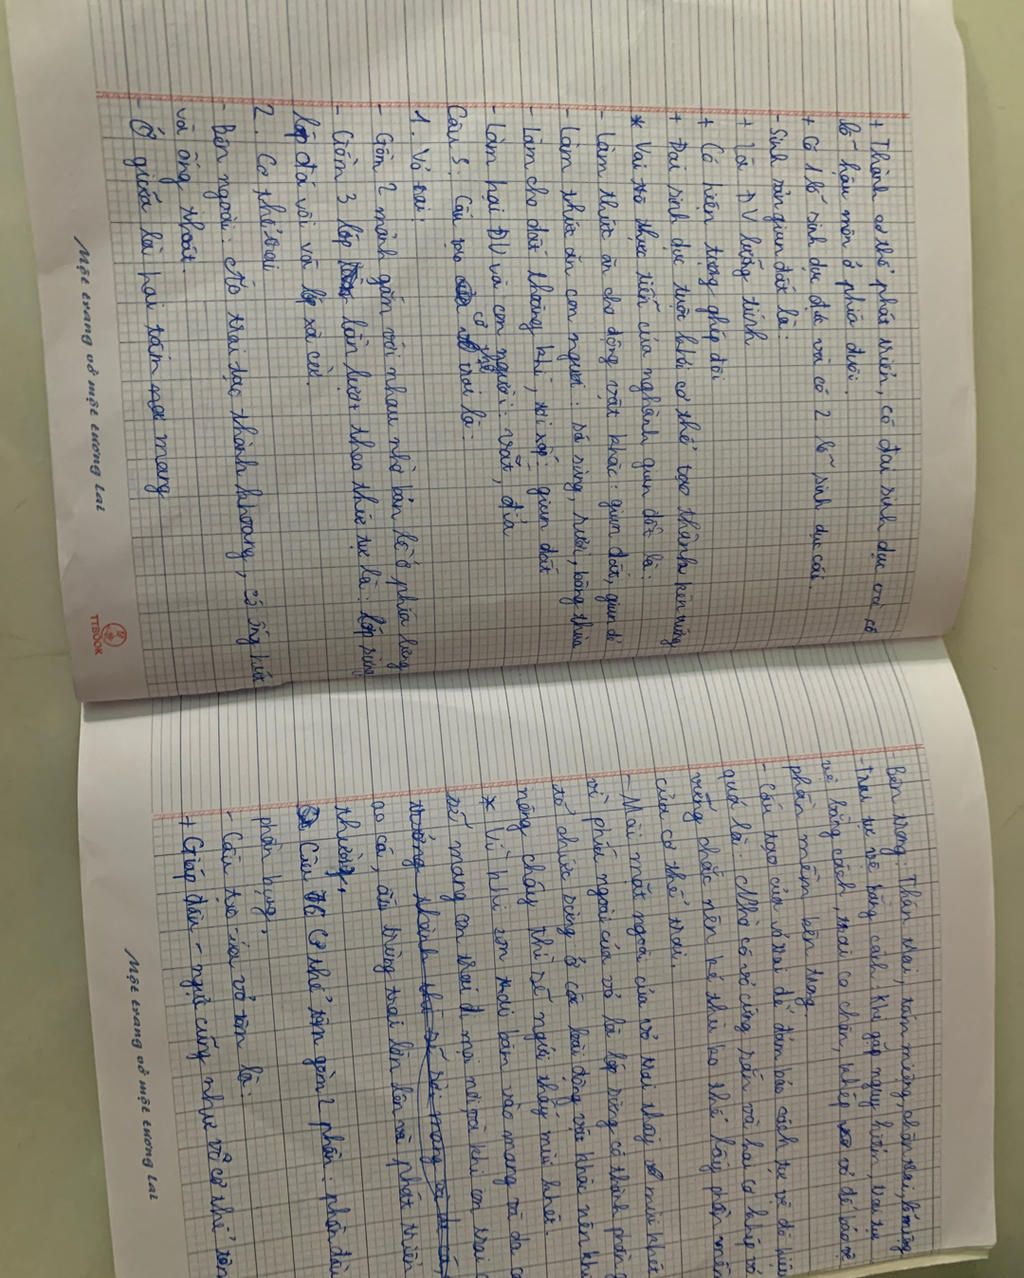 + Thành cơ thể phát triển, có đai sinh dục và có
lỗ hậu môn ở phía dưới.
+ Có 1 lỗ sinh dục đực và có 2 lỗ sinh dục cái.
- Sinh sản giun đất là:
+ Là ĐV lưỡng tính
+ Có hiện tượng ghép đôi
+ Đai sinh dục tuột khỏi cơ thể tạo thành kén trứng
* Vai trò thực tiễn của nghành giun đốt là:
- Làm thức ăn cho động vật khác: giun đất, giun đỏ
- Làm thức ăn con người: sá sùng, rươi, bông thùa
- Làm cho đất thoáng khí, tơi xốp: giun đất
- Làm hại ĐV và con người: vắt, đỉa
Câu 5: Cấu tạo cơ thể trai là:
1. Vỏ trai:
- Gồm 2 mảnh gắn với nhau nhờ bản lề ở phía lưng
- Gồm 3 lớp lần lượt theo thứ tự là: lớp sừng
lớp đá vôi và lớp xà cừ.
2. Cơ thể trai
- Bên ngoài: Áo trai tạo thành khoang, có ống hút
và ống thoát.
- Ở giữa là hai tấm mang
Một trang vở một tương lai
TTBOOK
- Bên trong: Thân trai, tấm miệng, chân trai, lỗ miệng
- Trai tự vệ bằng cách: Khi gặp nguy hiểm, trai tự
vệ bằng cách, trai co chân, khép vỏ để bảo vệ
phần mềm bên trong.
- Cấu tạo của trai để đảm bảo cách tự vệ đó hiệu
quả là: Nhờ có vỏ cứng rắn và hai cơ khép vỏ
vững chắc nên kẻ thù ko thể lấy phần mềm
của cơ thể trai.
- Mài mặt ngoài của vỏ trai thấy mùi khét
vì phía ngoài của vỏ là lớp sừng có thành phần
tổ chức sừng ở các loài động vật khác nên khi
nóng cháy thì sẽ ngửi thấy mùi khét.
* Vì khi con trai bám vào mang và da cá
sẽ mang con trai đi mọi nơi
ao cá, ấu trùng trai lớn lên và phát triển
thường,
Câu 6 Cơ thể tôm gồm 2 phần: phần đầu
phần bụng,
- Cấu tạo của vỏ tôm là:
+ Giáp đầu - ngực cũng như vỏ cơ thể tôm
Một trang vở một tương lai